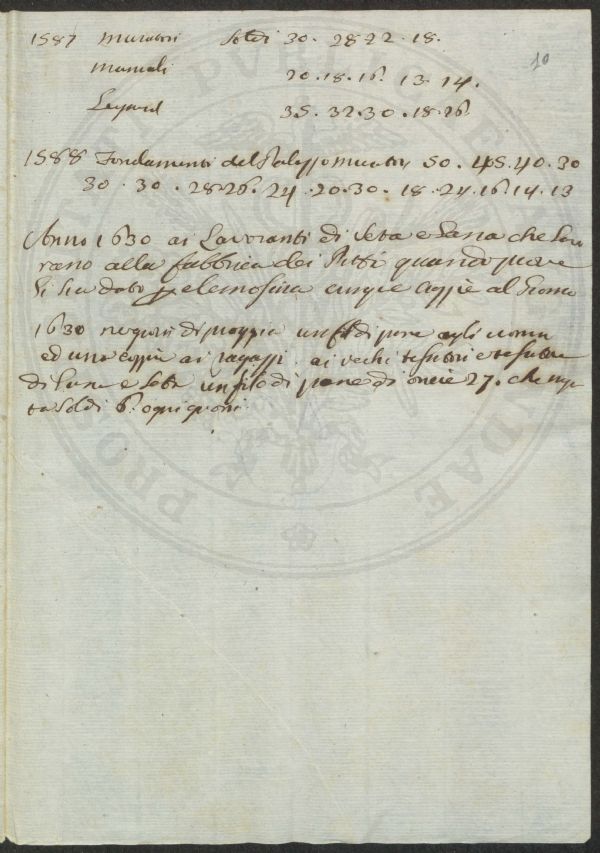 10
1587 Muratori Soldi 30. 28 22. 18.
Manuali 20. 18. 16. 13. 14.
35. 32. 30. 18. 26.
1588 Fondamenti del Palazzo Muratori 50. 45. 40. 30
30. 30. 28. 26. 24. 20. 30. 18. 24. 16. 14. 13
Anno 1630 ai Lavoranti di Seta e Lana che lavo
rano alla fabbrica dei Pitti quando piove
si sia dato elemosina cinque coppie al Giorno
1630 ne giorni di pioggia un filo di pane agli uomini
ed una coppia ai ragazzi. ai vechi tessitori e
di Lana e Seta un filo di pane di oncie 27. che
ta Soldi 6. ogni giorni